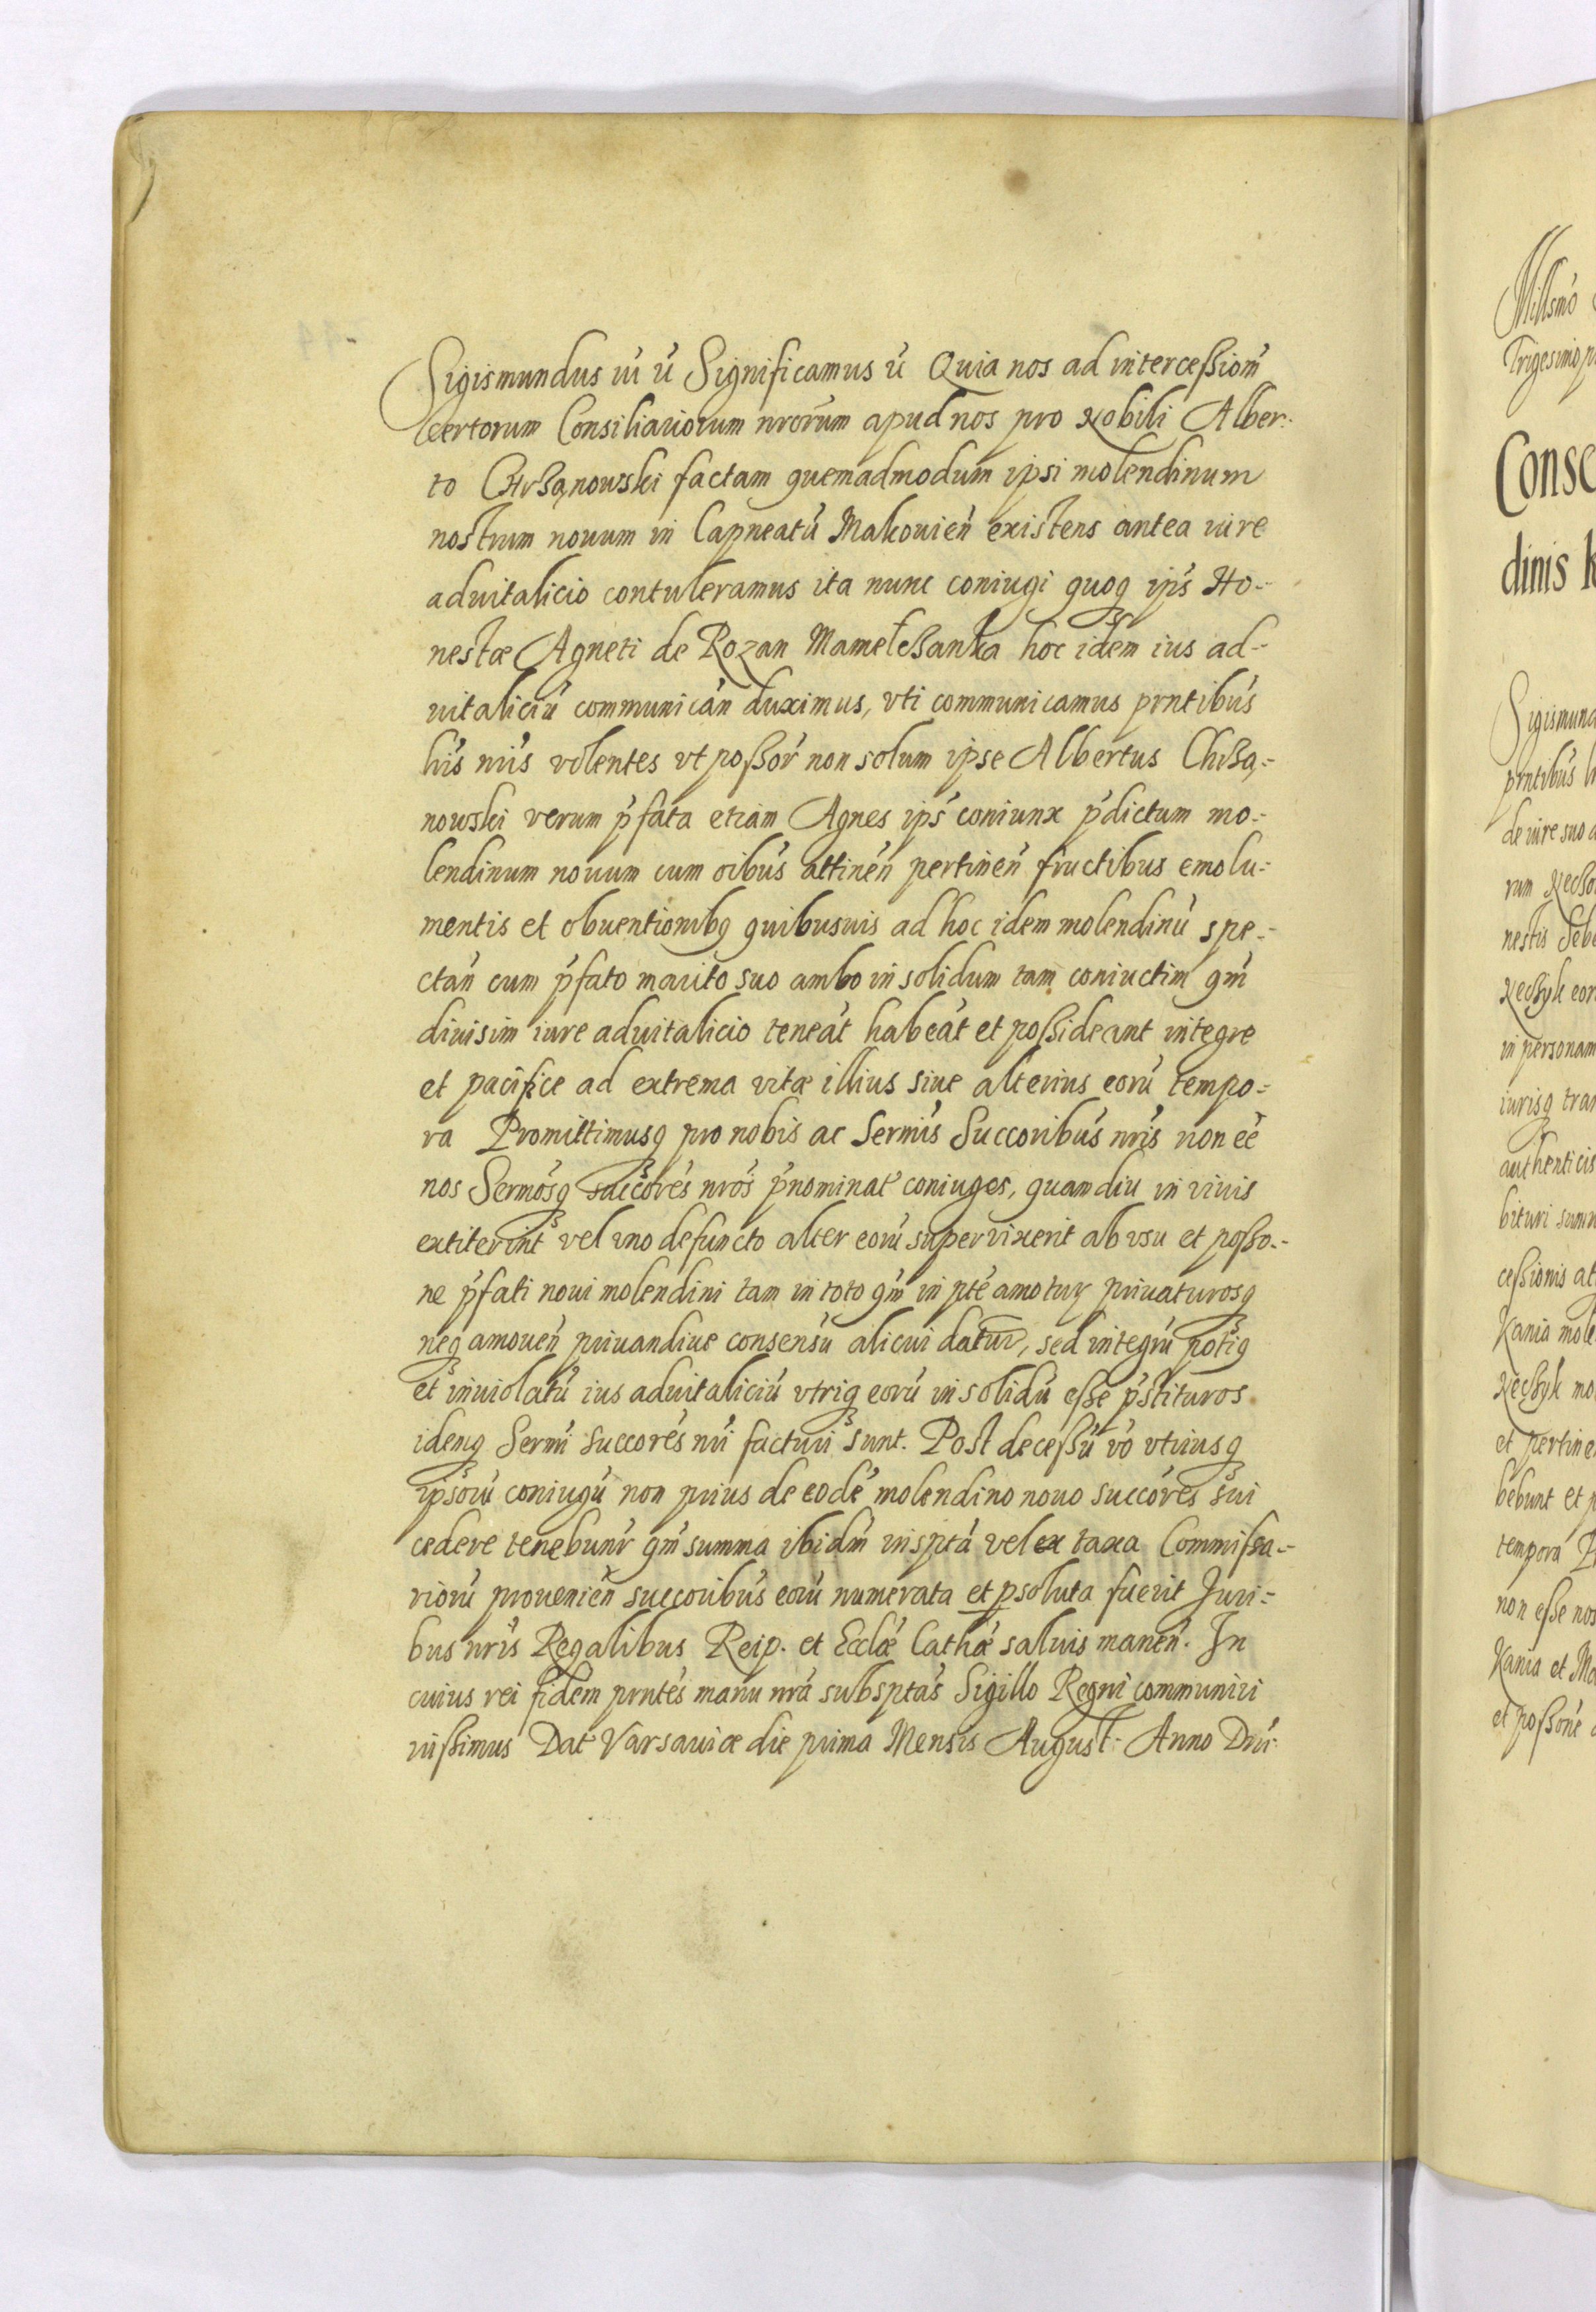 Sigismundus iii ẽ Significamus ẽ Quia nos ad intercessiom̃
certorum Consiliariorum nrorum apud nos pro Nobili Alber-
to Chrząnowski factam quemadmodum ipsi molendinum
nostrum nouum in Capneatũ Makouien̄ existens antea iure
aduitalicio contuleramus ita nunc coniugi quoq ips̄ Ho-
nestæ Agneti de Rozan hoc idem ius ad-
uitaliciũ communican̄ duximus, vti communicamus prntibus
his nr̄is volentes vt possor̄ non solum ipse Albertus Chrzą-
nowski verum p̄fata etiam Agnes ips̄ coniunx p̄dictum mo-
lendinum nouum cum oibus attinen̄ pertinen̄ fructibus emolu-
mentis et obuentionibq quibusuis ad hoc idem molendinũ spe-
ctan̄ cum p̄fato marito suo ambo in solidum tam coniuctim qm̄
diuisim iure aduitalicio teneāt habeāt et possideant integre
et pacifice ad extrema vitæ illius siue alterius eorũ tempo-
ra Promittimusq pro nobis ac Sermis̄ Succoribus nris̄ non eē
nos Sermosq̄ succores̄ nros̄ p̄nominat coniuges, quamdiu in viuis
extiterint vel uno defuncto alter eorũ superuixerit ab vsu et posso-
ne p̄fati noui molendini tam in toto qm̄ in ptē amoturꝝ priuaturosq
neq amouen̄ priuandiue consensũ alicui datur, sed integrũ potiq
et inuiolatũ ius aduitaliciũ vtriq eorũ in solidũ esse p̄stituros
idemq Sermi Succores̄ nri facturi sunt. Post decessũ vō vtriusq
ipsorũ coniugũ non prius de eodē molendino nouo succores̄ sui
cedere tenebunr̄ qm̄ summa ibidm̄ insptā vel ex taxa Commissa-
riorũ prouenien̄ succoribus̄ eorũ numerata et psoluta fuerit Juri-
bus nris̄ Regalibus Reip. et Ecclæ Cathæ saluis manen̄. In
cuius rei fidem prntes̄ manu nrā subsptas̄ Sigillo Regni communiri
iussimus Dat Varsauiæ die prima Mensis August. Anno Dni
Millsmo
Trigesimo p
Conse
dinis k
Sigismund
prntibus
de iure suo
rum
nestis
eor
in personam
iurisq tran
authenticis
bituri summ
cessionis
Kania mole
mo
et pertine
bebunt et p
tempora
non esse nos
Kania et Ma
et possone